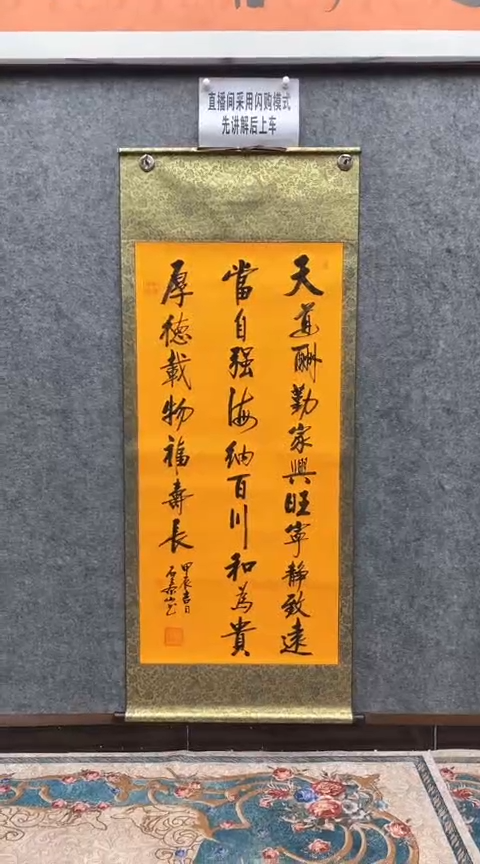 直播间采用闪购模式
先讲解后上车
天道酬勤家興旺寧静致遠
當自强海纳百川和為貴
厚德載物福壽長
甲辰吉日